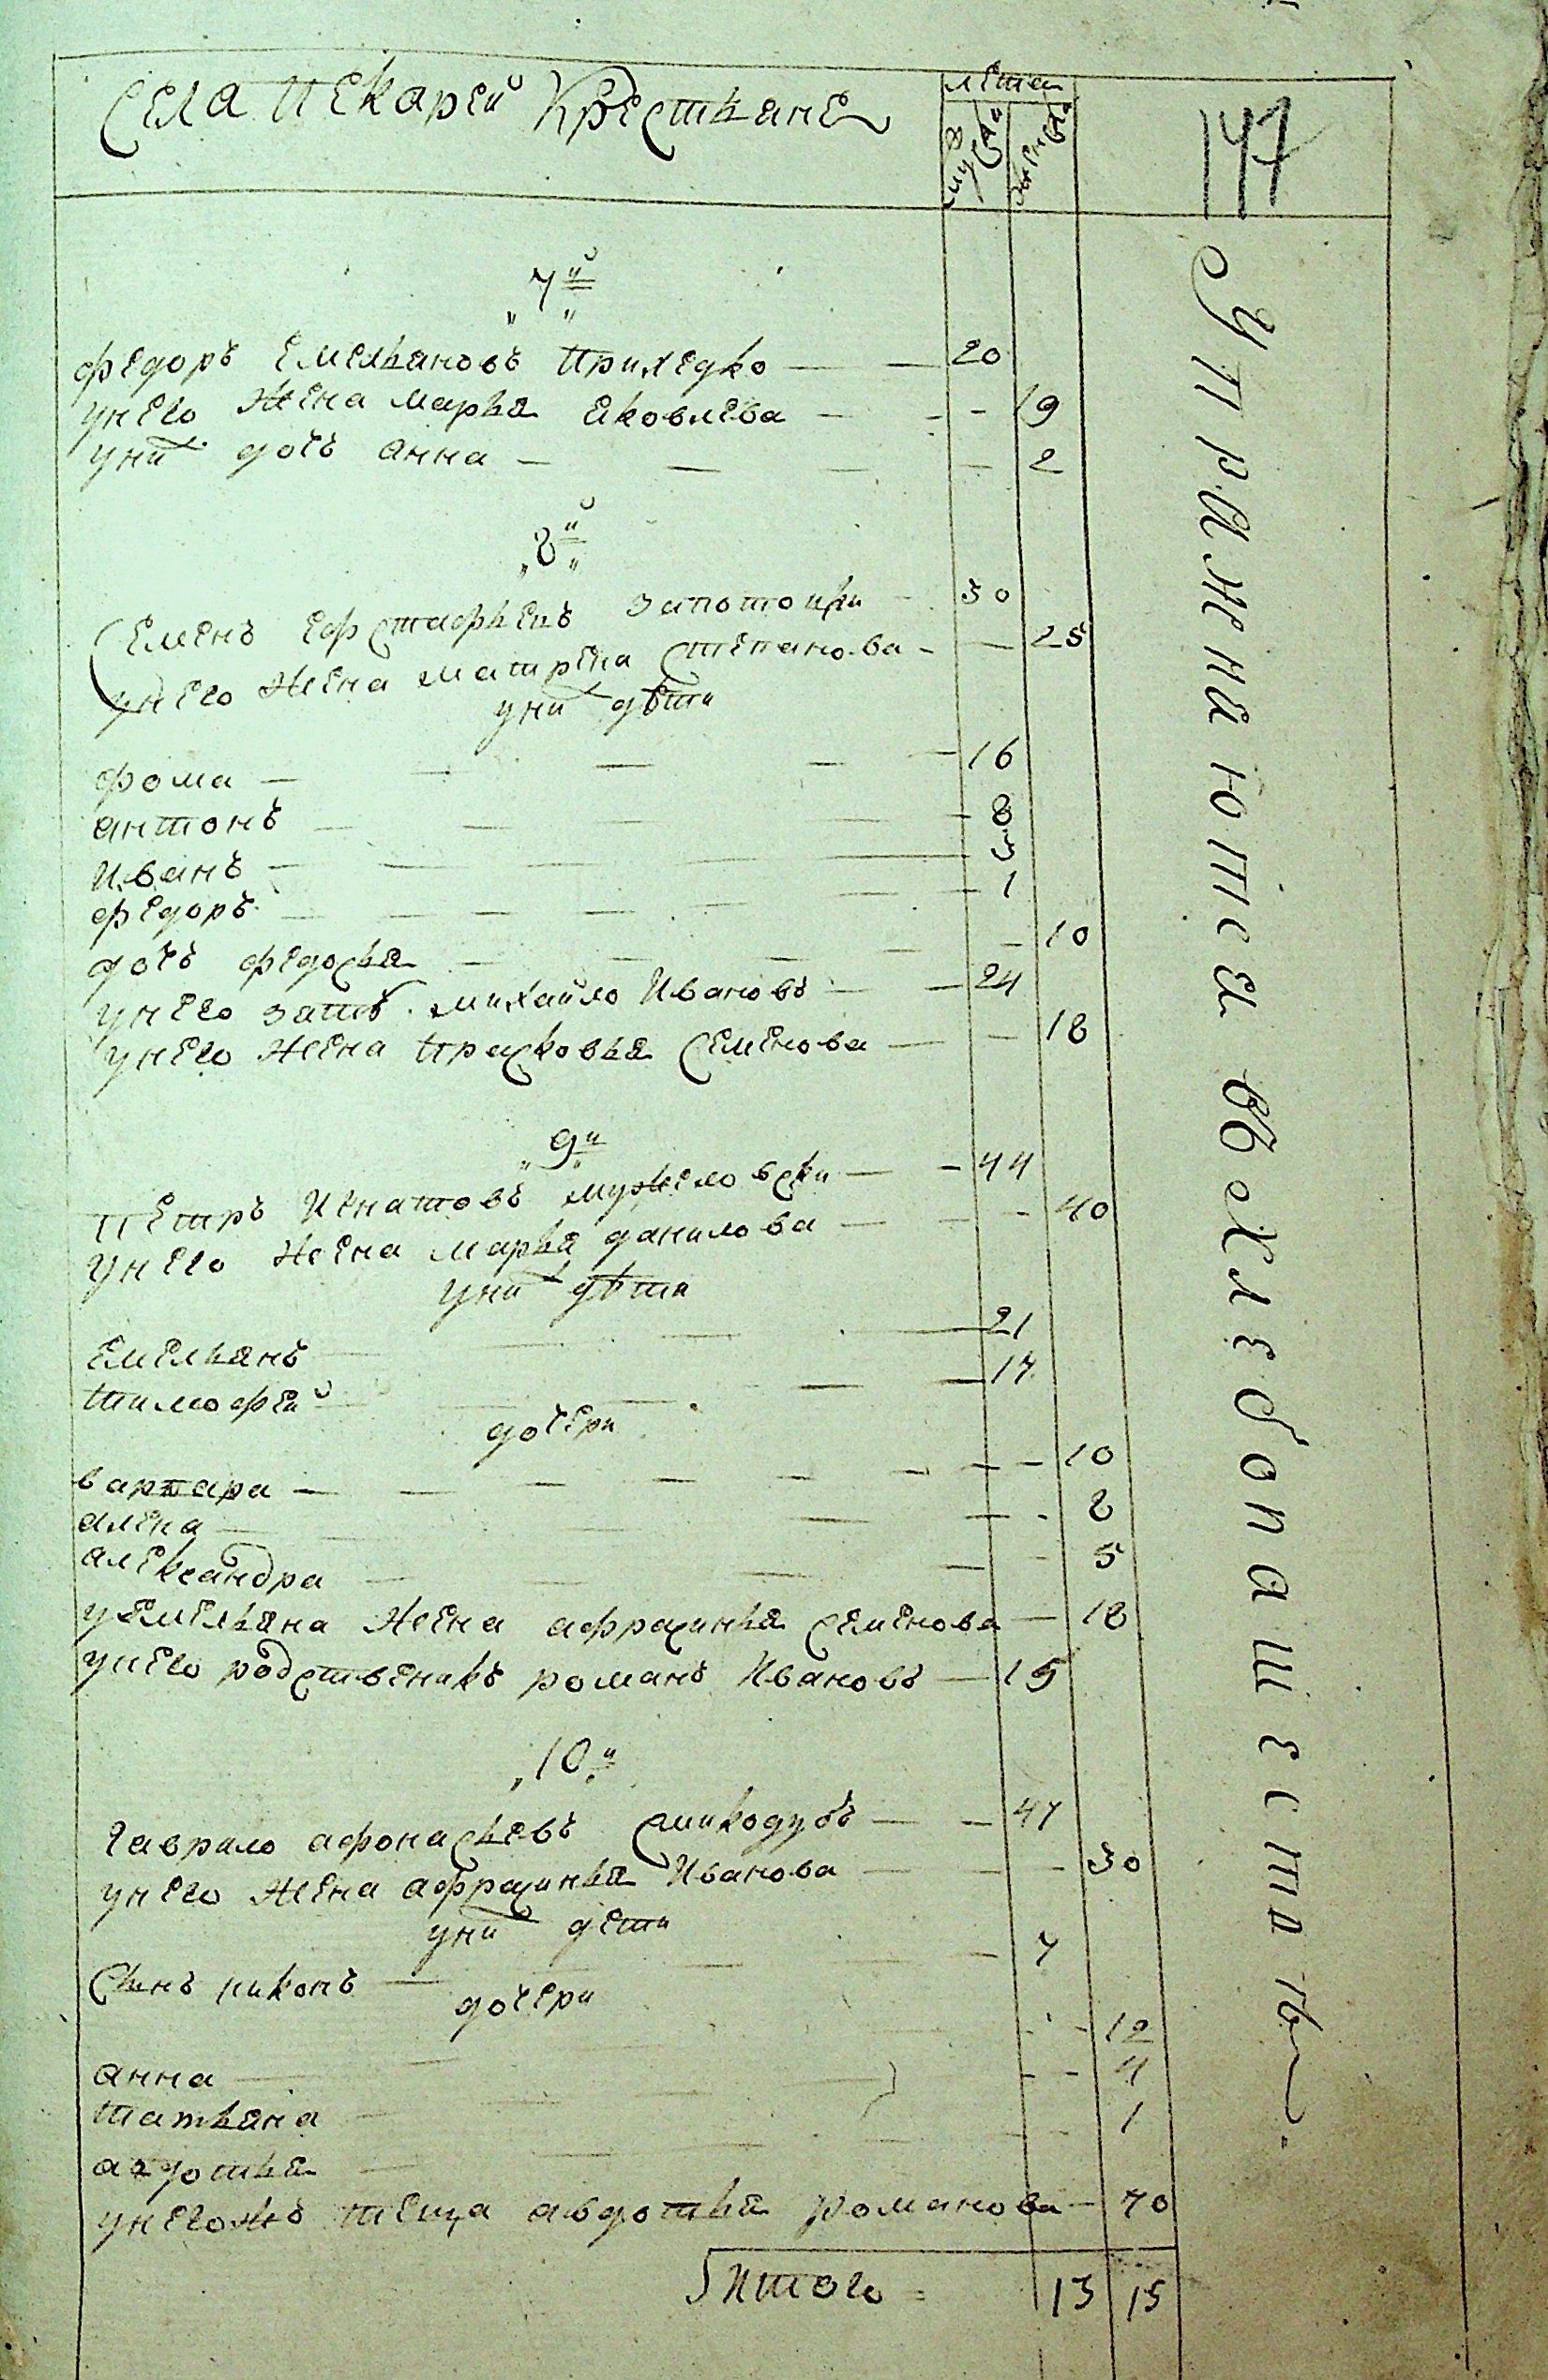 Села Пекарей Крестьяне
лета
мужска
женска
147
7й
Федоръ Емельяновъ Приходко 20
унего жена марья яковлева 19
уних дочъ анна 2
8й
Семенъ Ефстафьевъ 30
унего жена матрена Степанова 25
уних дѣти
фома 16
антонъ 8
Иванъ 3
федоръ 1
дочъ федосья 10
унего зять михайло Ивановъ 24
унего жена Прасковья Семенова 18
9й
Петръ Игнатовъ 44
унего жена марья данилова 40
уних дѣти
Емельянъ 21
тимофей 17
дочери
варвара 10
алена 8
александра 5
уемельяна жена афросинья семенова 18
унего родственикъ романъ Ивановъ 15
10й
гаврило афонасьевъ 47
унего жена афросинья Иванова 30
уних дети
Сынъ никонъ 7
дочери
анна 12
татьяна 4
авдотья 1
унегожъ теща авдотья романова 70
Итого 13 15
Упражнаются вхлебопашествѣ